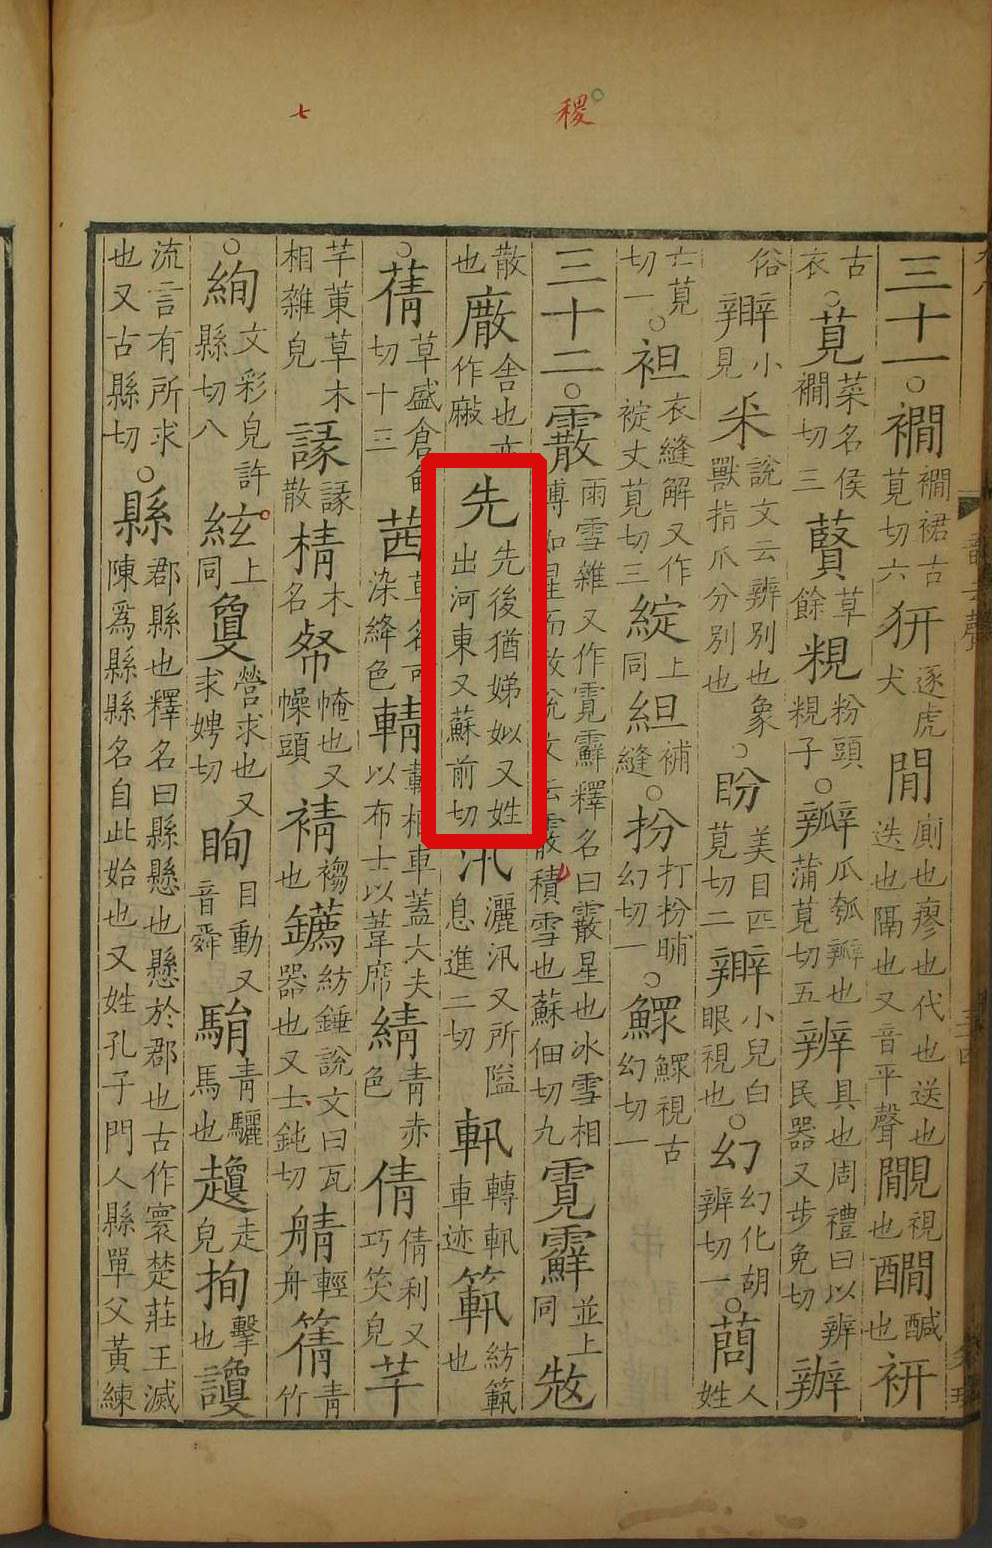 稷
七
三十一○襉襉裙古莧切六逐虎犬閒廁也瘳也代也送也迭也隔也又音平聲覸視也醎也
古衣○莧菜名侯襉切三草餘粯粉頭粯子○瓣瓜瓠瓣也蒲莧切五辨具也周禮曰以辨民器又步免切辦
俗小見釆說文云辨別也象獸指爪分別也○盼美目匹莧切二小兒白眼視也○幻幻化胡辨切一○蕳人姓
亡莧切一○袒衣縫解又作綻丈莧切三綻上同組補縫○扮打扮晡幻切一○鰥鰥視古幻切一
三十二○霰雨雪雜又作霓釋名曰霰星也冰雪相搏如星而散說文云霰積雪也蘇佃切九霓並上同
散也舍也亦作先先後猶娣姒又姓出河東又蘇前切汛灑汛又所隘息進二切軐轉軐車迹紡也
○蒨草盛倉甸切十三茜草名可染絳色輤載柩車蓋大夫以布士以葦席綪青赤色倩倩利又巧笑皃芊
芊草木相雜皃散棈木名也又幧頭也紡錘說文曰瓦器也又士鈍切輕舟青竹
○絢文彩皃許縣切八上同夐營求也又求娉切眴目動又音舜駽青驪馬也走皃擊也讂
流言有所求也又古縣切○縣郡縣也釋名曰縣懸也懸於郡也古作寰楚莊王滅陳爲縣縣名自此始也又姓孔子門人縣單父黃練